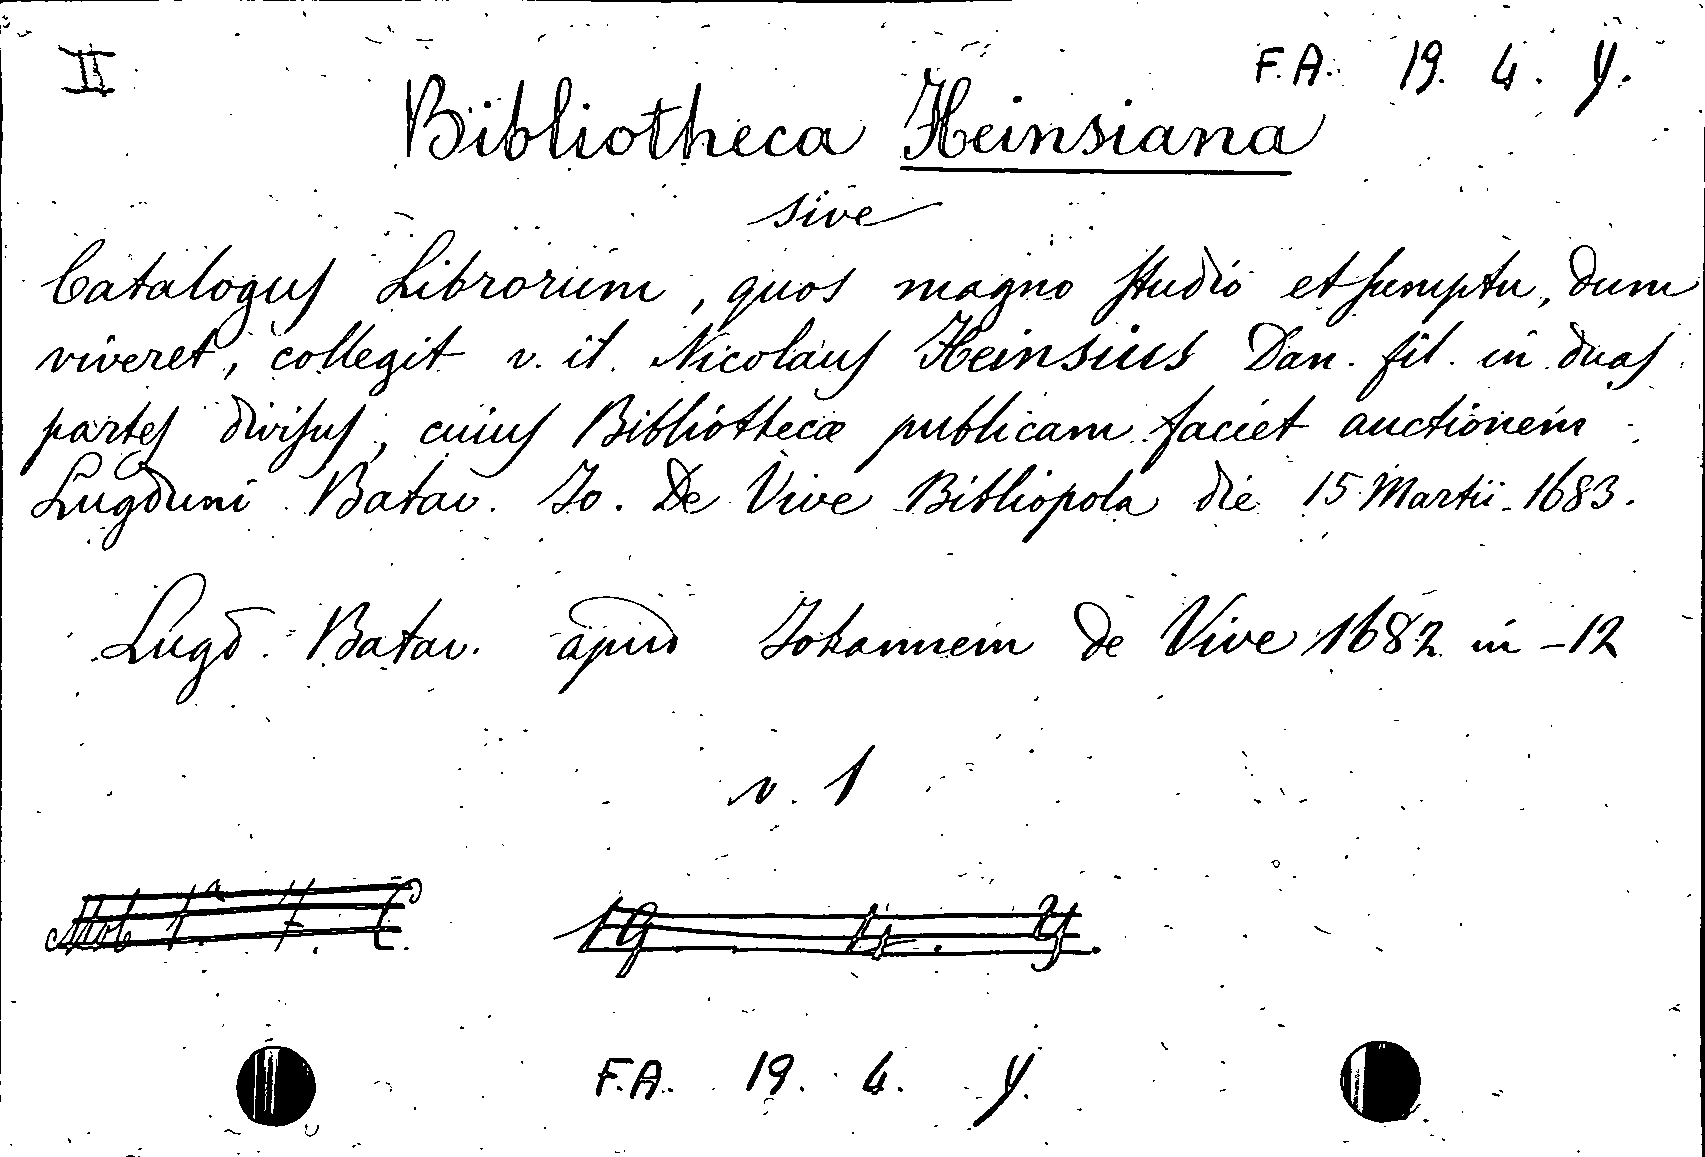 II
F.A. 19. 4. y.
Bibliotheca Heinsiana
sive
Catalogus Librorum, quos magno studio et sumptu, dum
viveret, collegit v. il. Nicolaus Heinsius Dan. fil. in duas
partes divisus, cuius Bibliothecæ publicam faciet auctionem
Lugduni Batav. Jo. De Vive Bibliopola die 15 Martii. 1683.
Lugd. Batav. apud Johannem de Vive 1682 in -12
v. 1
19 4. y.
F.A. 19. 4. y.